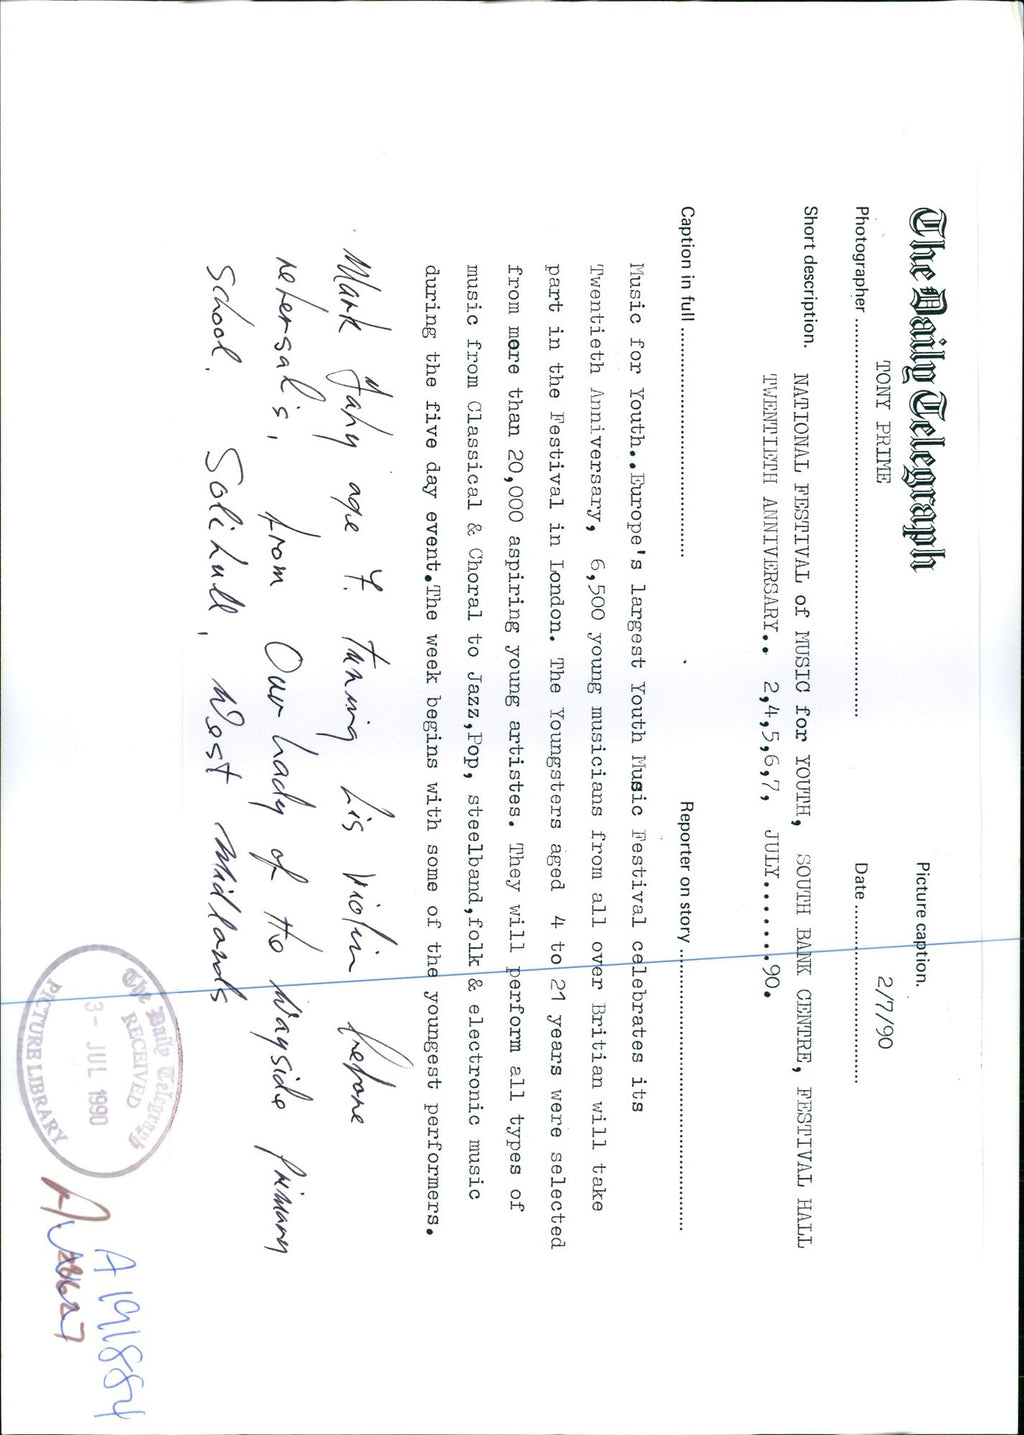 The Daily Telegraph
Picture caption.
TONY PRIME
2/7/90
Photographer
Date
Short description. NATIONAL FESTIVAL of MUSIC for YOUTH, SOUTH BANK CENTRE, FESTIVAL HALL
TWENTIETH ANNIVERSARY.. 2,4,5,6,7, JULY......90.
Caption in full
Reporter on story
Music for Youth..Europe's largest Youth Music Festival celebrates its
Twentieth Anniversary, 6,500 young musicians from all over Britian will take
part in the Festival in London. The Youngsters aged 4 to 21 years were selected
from more than 20,000 aspiring young artistes. They will perform all types of
music from Classical & Choral to Jazz,Pop, steelband,folk & electronic music
during the five day event.The week begins with some of the youngest performers.
Mark age 7. tuning his violin before
rehersal's, from Our Lady of the Wayside Primary
School. Solihull, West Midlands
The Daily Telegraph
RECEIVED
3- JUL 1990
PICTURE LIBRARY
A191884